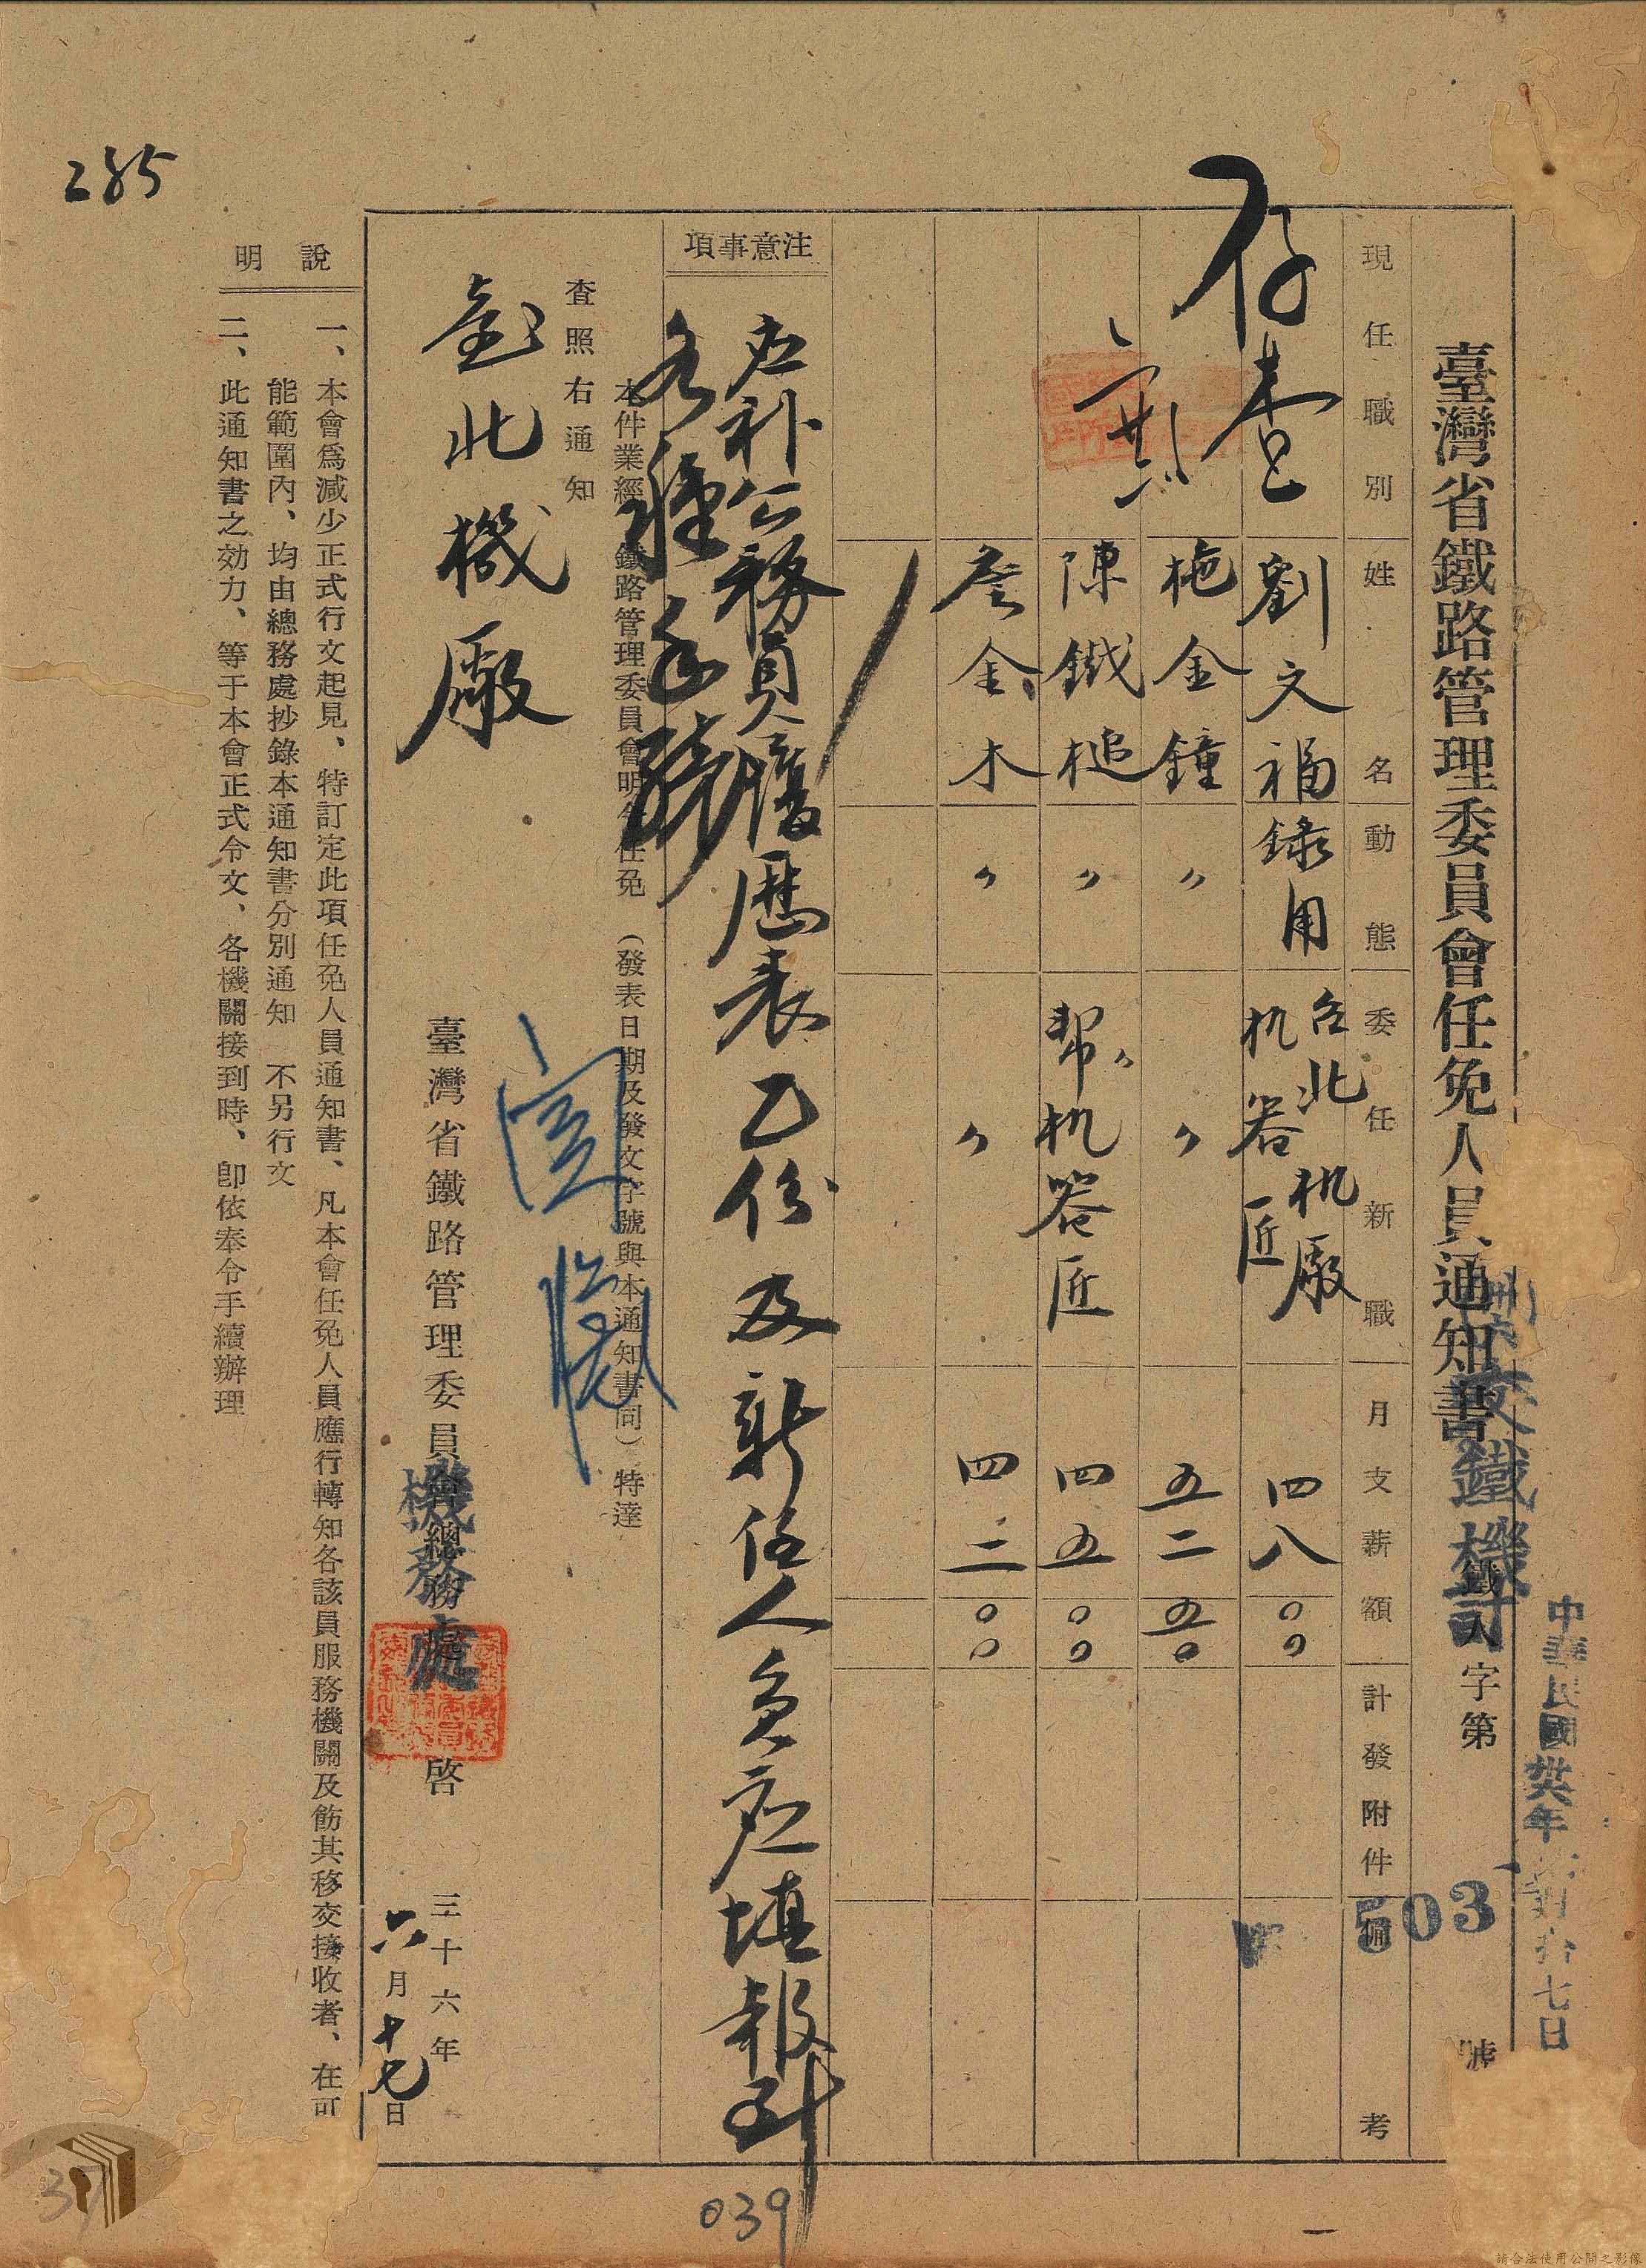 臺灣省鐵路管理委員會任免人員通知書
鐵人字第
503
號
中華民國
年
拾七日
現任職別
姓名
動態
委任新職
月支薪額
計發附件
備考
存查
劉文福
錄用
台北机廠
机器匠
四八〇〇
施金鐘
〃
〃
五二五〇
陳鐵槌
〃
〃
幫机器匠
四五〇〇
金木
〃
〃
四二〇〇
注意事項
應补公務員履歷表乙份及新任人員應填報
各種手續
本件業經
鐵路管理委員會明令任免
(發表日期及發文字號與本通知書同)特達
查照右通知
臺北機廠
臺灣省鐵路管理委員會總務處
啓
機務處
三十六年
六月十七日
說明
一、本會爲減少正式行文起見、特訂定此項任免人員通知書、凡本會任免人員應行轉知各該員服務機關及飭其移交接收者、在可
能範圍內、均由總務處抄錄本通知書分別通知 不另行文
二、此通知書之効力、等于本會正式令文、各機關接到時、卽依奉令手續辦理
285
039
請合法使用公開之影像